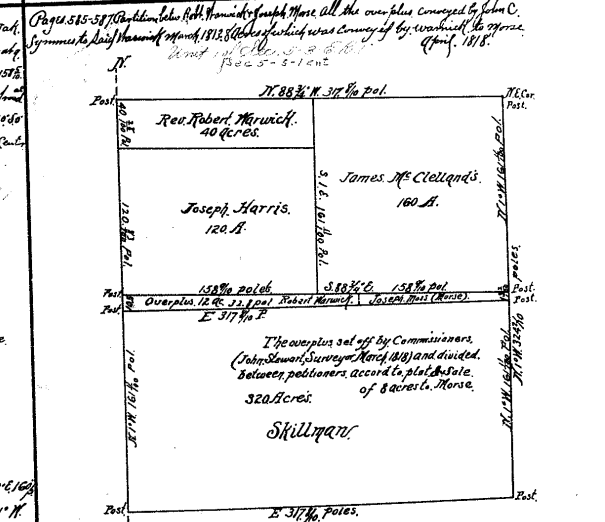 Pages. 585-587. Partition betw. Robt. Warwick & Joseph Morse. all the overplus conveyed by John C.
Symmes to said Warwick March, 1813. 8 Acres of which was conveyed by warwick to Morse
April. 1818.
N.
N. 88¾° W. 317 8/10 pol.
Post.
N.E. Cor.
Post.
Rev. Robert Warwick.
40 acres.
James McClelland's
160 A.
Joseph Harris.
120. A.
S. 1. E. 161 Pol.
N. 1° W. 161 Pol.
158 9/10 poles.
S. 88¾° E. 158 9/10 pol.
Post.
Post.
Overplus. 12 ac. 32.8 pol
Robert Warwick.
Joseph Moss (Morse).
Post.
Post.
E 317 8/10 P.
The overplus set off by Commissioners,
(John Stewart, Surveyor, March, 1818) and divided
between petitioners, accord to plat, & Sale
of 8 acres to Morse.
320 Acres.
Skillman.
N. 1° W. 161 Pol.
N. 1° W. 161 Pol.
poles.
Post.
E 317 poles.
Post.